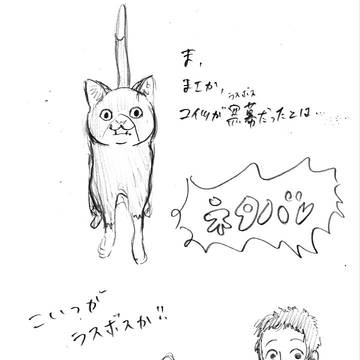 ま、
まさか、
コイツが黒幕だったとは…
ラスボス
ネタバレ
こいつが
ラスボスか!!